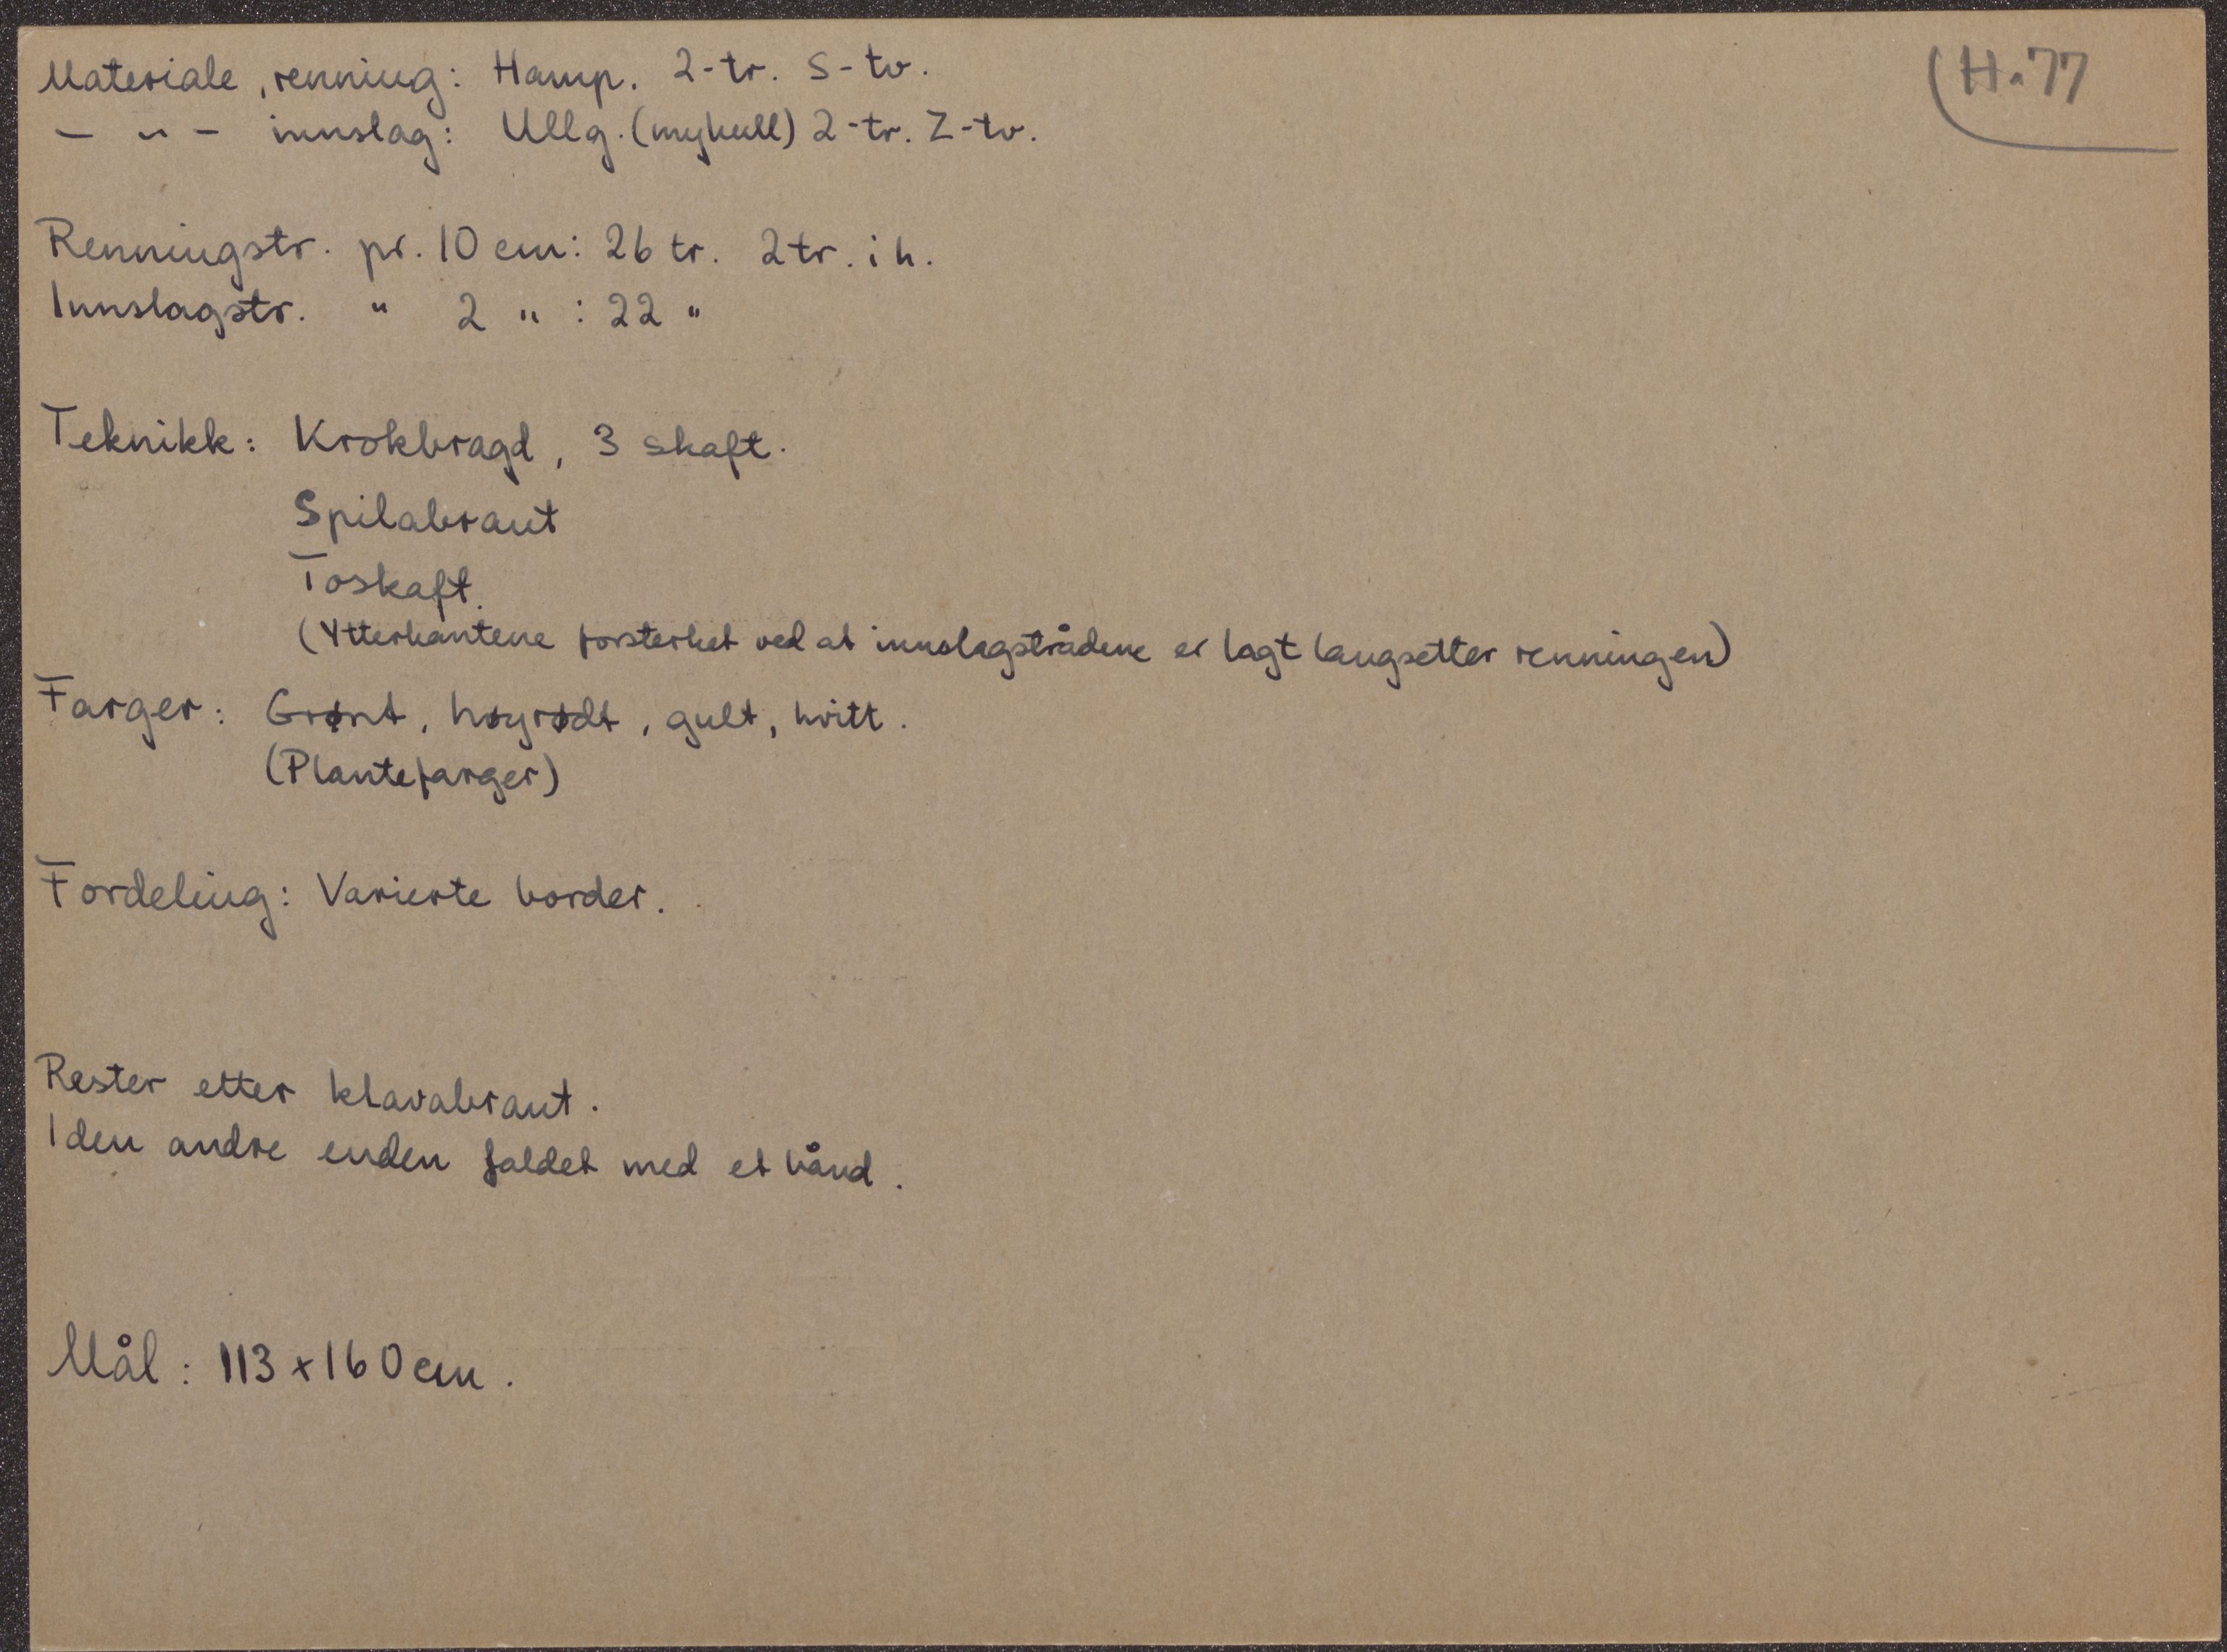 H. 77
Materiale, renning: Hamp. 2-tr. S-tv.
— " — innslag: Ullg. (mykull) 2-tr. Z-tv.
Renningstr. pr. 10 cm: 26 tr. 2 tr. i h.
Innslagstr. " 2 " : 22 "
Teknikk: Krokbragd, 3 skaft.
Spilabraut
Toskaft.
(Ytterkantene forsterket ved at innslagstrådene er lagt langsetter renningen)
Farger: Grønt, høyrødt, gult, hvitt.
(Plantefarger)
Fordeling: Varierte border.
Rester etter klavabraut.
I den andre enden faldet med et bånd.
Mål: 113 x 160 cm.